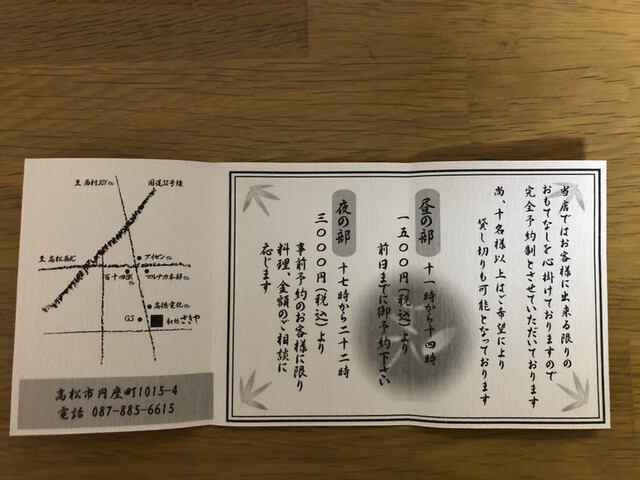 当店ではお客様に出来る限りの
おもてなしを心掛けておりますので
完全予約制とさせていただいております
尚、十名様以上はご希望により
貸し切りも可能となっております
昼の部 十一時から十四時
一五〇〇円(税込)より
前日までに御予約下さい
夜の部 十七時から二十二時
三〇〇〇円(税込)より
事前予約のお客様に限り
料理、金額のご相談に
応じます
至 西村JOYさん
国道32号線
至 高松西IC
アイゼンさん
百十四銀さん
マルナカ本部さん
高橋電化さん
GS
和処 ざきや
高松市円座町1015-4
電話 087-885-6615